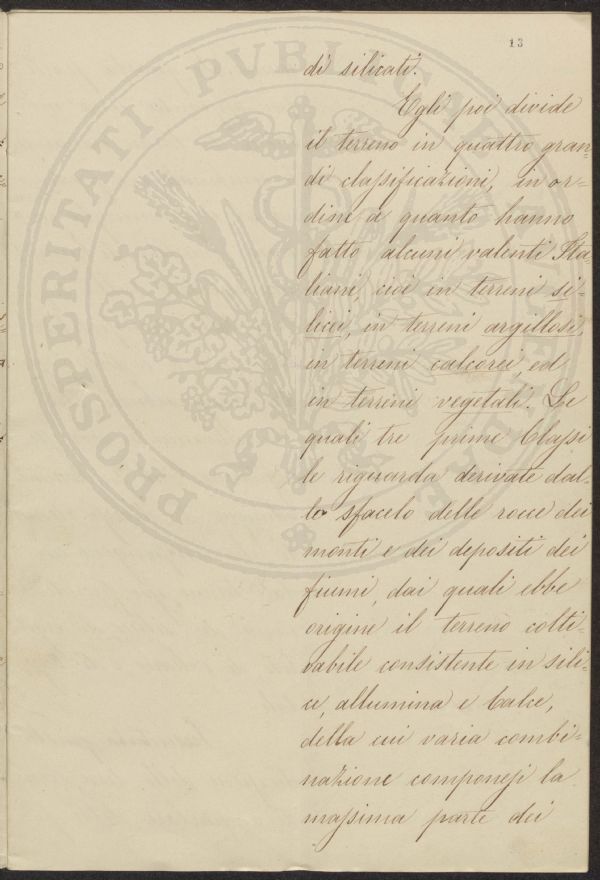 13
di silicati.
Egli poi divide
il terreno in quattro gran=
di classificazioni, in or=
dine a quanto hanno
fatto alcuni valenti Ita=
liani, cioè in terreni si=
licei, in terreni argillosi,
in terreni calcarei, ed
in terreni vegetali. Le
quali tre prime Classi
le riguarda derivate dal=
lo sfacelo delle rocce dei
monti e dei depositi dei
fiumi, dai quali ebbe
origine il terreno colti=
vabile consistente in sili=
ce, allumina e Calce,
della cui varia combi=
nazione componesi la
massima parte dei
PROSPERITATI PVBLICAE